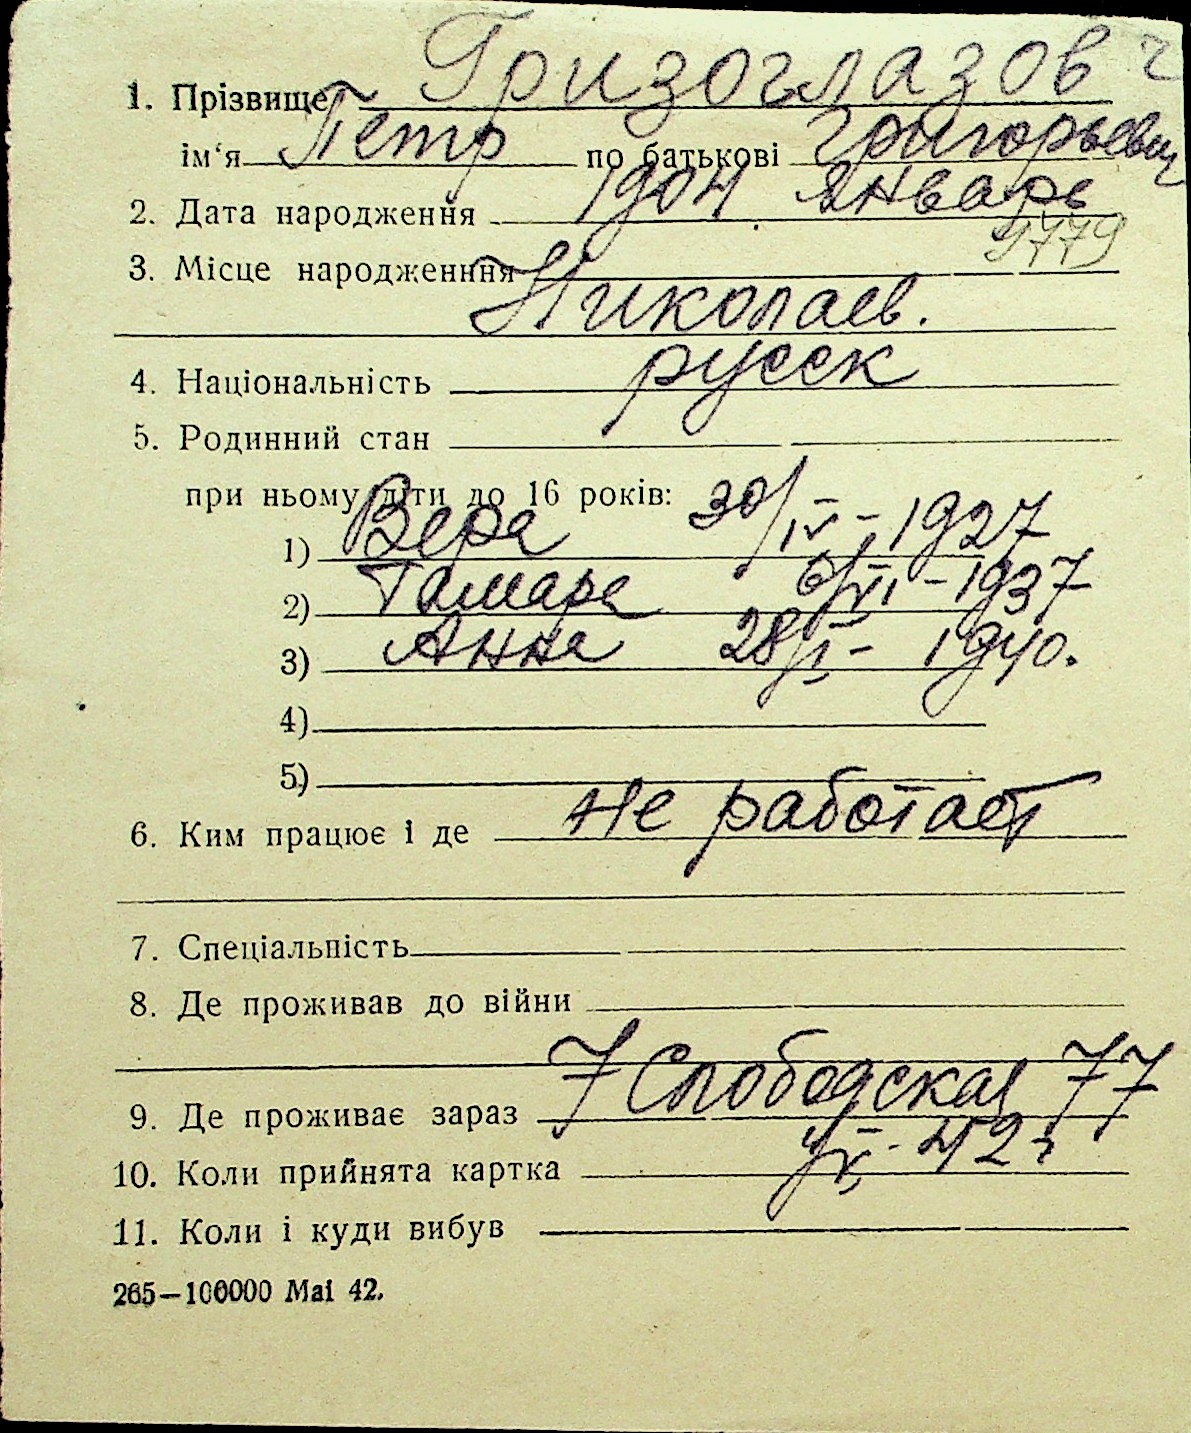 1. Прізвище Гризоглазов
ім‘я Петр по батькові Григорьевич
2. Дата народження 1904 январь
9779
3. Місце народженння
Николаев.
4. Національність русск
5. Родинний стан
при ньому діти до 16 років:
1) Вера 30/IV-1927
2) Тамара 6/VI-1937
3) Анна 28/I-1940.
4)
5)
6. Ким працює і де не работает
7. Спеціальність
8. Де проживав до війни
9. Де проживає зараз 7 Слободская 77
10. Коли прийнята картка
11. Коли і куди вибув
265—100000 Mai 42.